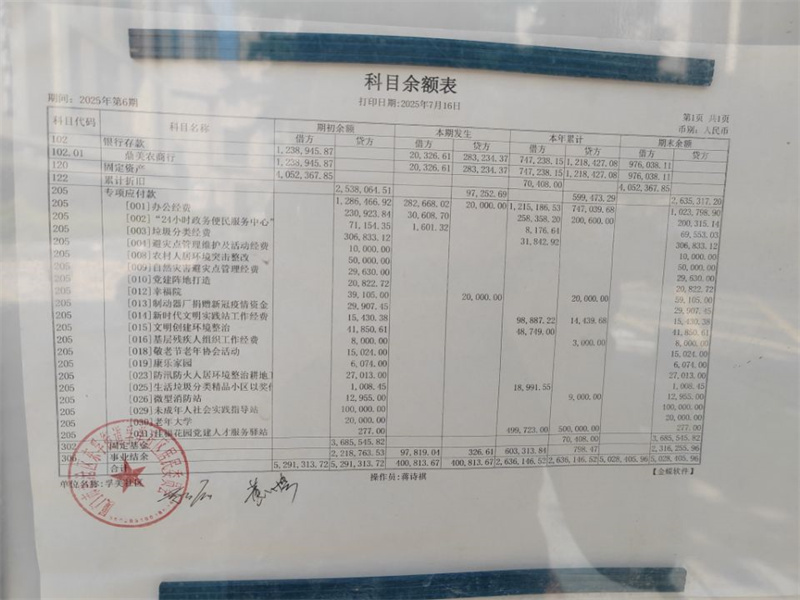 科目余额表
期间: 2025年第6期 打印日期:2025年7月16日 第1页 共1页
币别: 人民币
科目代码 科目名称 期初余额 本期发生 本年累计 期末余额
借方 贷方 借方 贷方 借方 贷方 借方 贷方
102 银行存款 1,238,945.87 20,326.61 283,234.37 747,238.15 1,218,427.08 976,038.11
102.01 鼎美农商行 1,238,945.87 20,326.61 283,234.37 747,238.15 1,218,427.08 976,038.11
120 固定资产 4,052,367.85 70,408.00 4,052,367.85
122 累计折旧 2,538,064.51 97,252.69 599,473.29 2,635,317.20
205 专项应付款 1,286,466.92 282,668.02 20,000.00 1,215,186.53 747,039.68 1,023,798.90
205 [001]办公经费 230,923.84 30,608.70 258,358.20 200,600.00 200,315.14
205 [002]“24小时政务便民服务中心” 71,154.35 1,601.32 8,176.64 69,553.03
205 [003]垃圾分类经费 306,833.12 31,842.92 306,833.12
205 [004]避灾点管理维护及活动经费 10,000.00 10,000.00
205 [008]农村人居环境突击整改 50,000.00 50,000.00
205 [009]自然灾害避灾点管理经费 29,630.00 29,630.00
205 [010]党建阵地打造 20,822.72 20,822.72
205 [012]幸福院 39,105.00 20,000.00 20,000.00 59,105.00
205 [013]制动器厂捐赠新冠疫情资金 29,907.45 29,907.45
205 [014]新时代文明实践站工作经费 15,430.38 98,887.22 14,439.68 15,430.38
205 [015]文明创建环境整治 41,850.61 48,749.00 41,850.61
205 [016]基层残疾人组织工作经费 8,000.00 3,000.00 8,000.00
205 [018]敬老节老年协会活动 15,024.00 15,024.00
205 [019]康乐家园 6,074.00 6,074.00
205 [023]防汛防火人居环境整治耕地 27,013.00 27,013.00
205 [025]生活垃圾分类精品小区以奖代 1,008.45 18,991.55 1,008.45
205 [026]微型消防站 12,955.00 9,000.00 12,955.00
205 [029]未成年人社会实践指导站 100,000.00 100,000.00
205 [030]老年大学 20,000.00 20,000.00
205 花园党建人才服务驿站 277.00 499,723.00 500,000.00 277.00
302 固定基金 3,685,545.82 70,408.00 3,685,545.82
306 事业结余 2,218,763.53 97,819.04 326.61 603,313.84 798.47 2,316,255.96
合计 5,291,313.72 5,291,313.72 400,813.67 400,813.67 2,636,146.52 2,636,146.52 5,028,405.96 5,028,405.96
单位名称: 孚美社区 操作员:蒋诗祺 【金蝶软件】